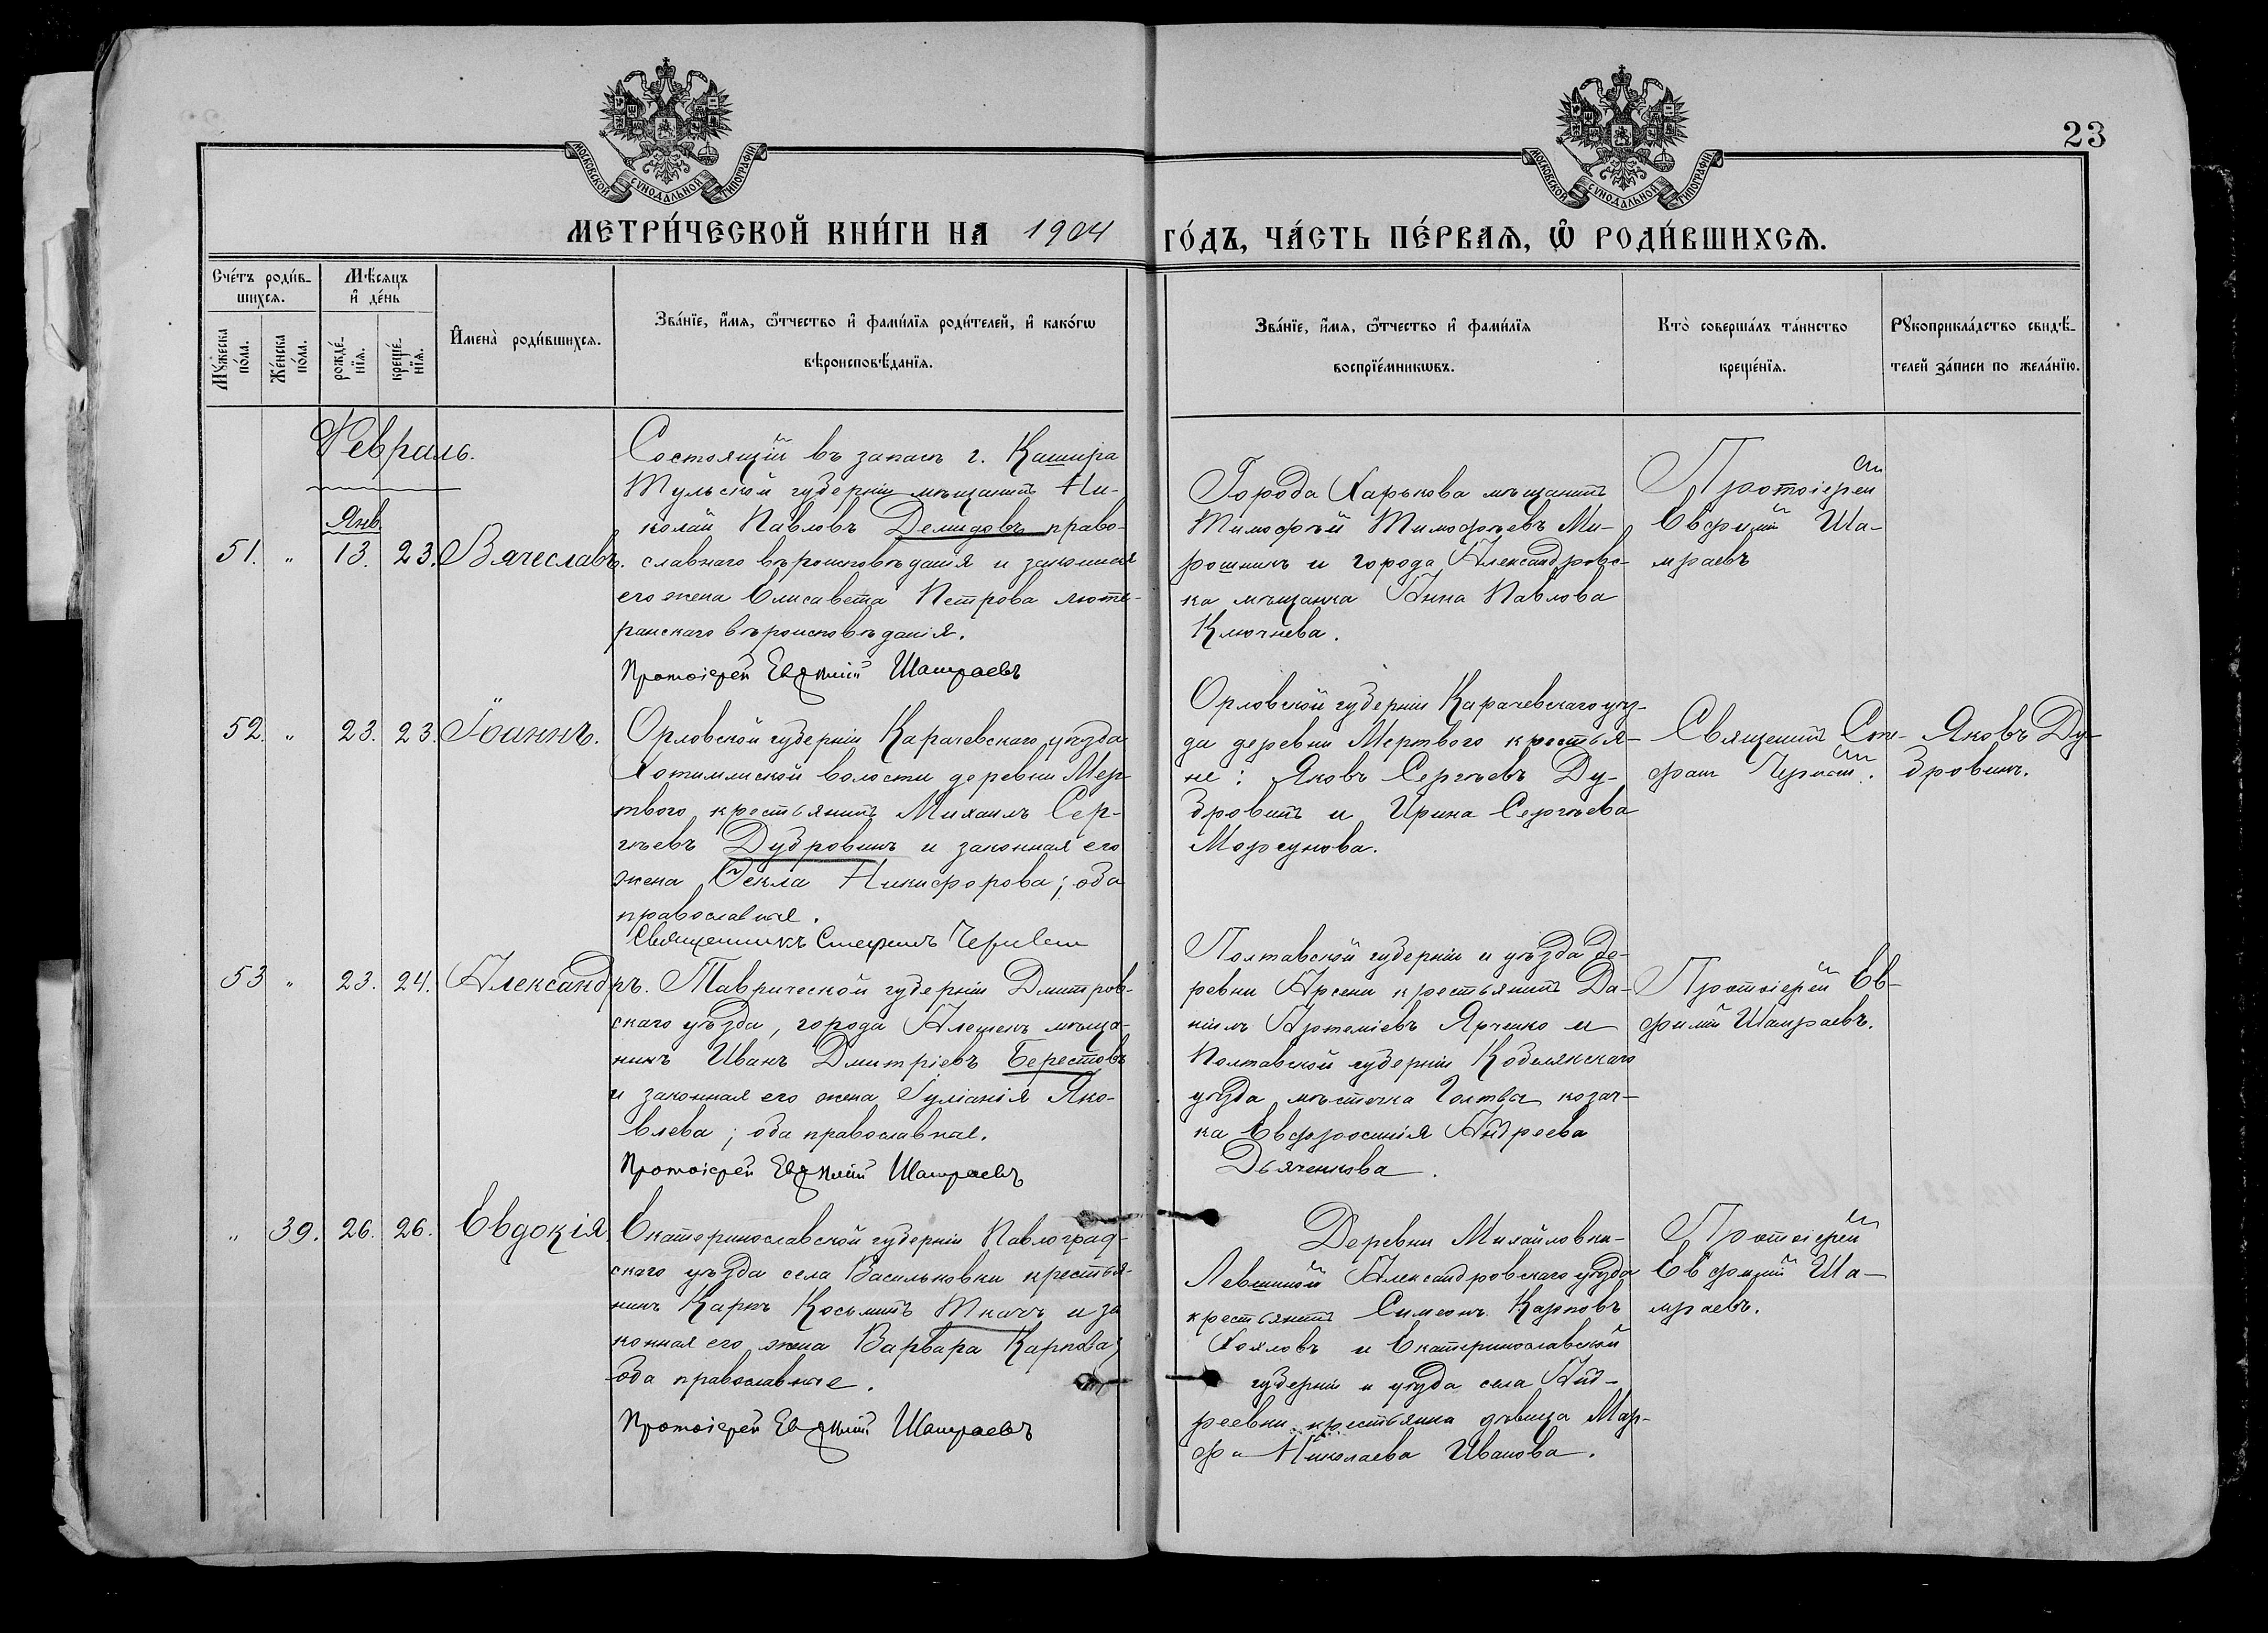 МОСКОВСКОЙ СѴНОДАЛЬНОЙ ТИПОГРАФІИ
МОСКОВСКОЙ СѴНОДАЛЬНОЙ ТИПОГРАФІИ
23
МЕТРИ́ЧЕСКОЙ КНИ́ГИ НА 1904 ГО́ДЪ, ЧА́СТЬ ПЕ́РВАѦ, Ѡ҆ РОДИ́ВШИХСѦ.
Сче́тъ роди́в-
шихсѧ.
Мꙋ́жеска
по́ла.
Же́нска
по́ла.
Мѣ́сѧцъ
и҆ де́нь
рожде́-
нїѧ.
креще́-
нїѧ.
И҆мена̀ роди́вшихсѧ.
Зва́нїе, и҆́мѧ, ѻ҆́тчество и҆ фами́лїѧ роди́телей, и҆ како́гѡ
вѣроисповѣ́данїѧ.
Зва́нїе, и҆́мѧ, ѻ҆́тчество и҆ фами́лїѧ
воспрїе́мникѡвъ.
Кто̀ соверша́лъ та́инство
креще́нїѧ.
Рꙋкоприкла́дство свидѣ́-
телей за́писи по жела́нїю.
Февраль.
Янв.
51. " 13. 23. Вячеславъ.
Состоящій въ запасѣ г. Кашира
Тульской губерніи мѣщанинъ Ни-
колай Павловъ Демидовъ право-
славнаго вѣроисповѣданія и законная
его жена Елисавета Петрова люте-
ранскаго вѣроисповѣданія.
Протоіерей Евѳимій Шамраевъ
Города Харькова мѣщанинъ
Тимофѣй Тимофѣевъ Ми-
рошникъ и города Александровс-
ка мѣщанка Анна Павлова
Ключнева.
Протоіерей
Евфимій Ша-
мраевъ
52. " 23. 23. Іоаннъ.
Орловской губерніи Карачевскаго уѣзда
Хотимлиской волости деревни Мер-
твого крестьянинъ Михаилъ Сер-
гѣевъ Дубровинъ и законная его
жена Ѳекла Никифорова; оба
православные.
Священникъ Стефанъ
Орловской губерніи Карачевскаго уѣз-
да деревни Мертвого крестья-
не: Яковъ Сергѣевъ Ду-
бровинъ и Ирина Сергѣева
Морсунова.
Священникъ Сте-
фан
Яковъ Ду-
бровинъ.
53 " 23. 24. Александръ.
Таврической губерніи Дмитров-
скаго уѣзда, города Алешекъ мѣща-
нинъ Иванъ Дмитріевъ Берестовъ
и законная его жена Іуліанія Яко-
влева; оба православные.
Протоіерей Евѳимій Шамраевъ
Полтавской губерніи и уѣзда де-
ревни Арсени крестьянинъ Да-
ніилъ Артеміевъ Ярченко и
Полтавской губерніи Кобелякскаго
уѣзда мѣстечка Голтвы козач-
ка Евфросинія Андреева
Дьяченкова.
Протоіерей Ев-
фимій Шамраевъ.
" 39. 26. 26. Евдокія
Екатеринославской губерніи Павлоград-
скаго уѣзда села Васильковки крестья-
нинъ Карпъ Косьминъ Ткачъ и за
конная его жена Варвара Карпова;
оба православные.
Протоіерей Евѳимій Шамраевъ
Деревни Михайловки-
Левшиной Александровскаго уѣзда
крестьянинъ Симеонъ Карповъ
и Екатеринославской
губерніи и уѣзда села Анд-
реевки крестьянка дѣвица Мар-
фа Николаева Иванова.
Протоіерей
Евфимій Ша-
мраевъ.